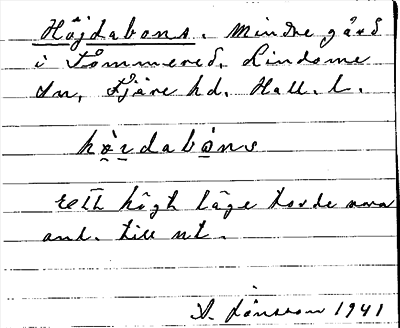 Höjdabons. Mindre gård
i Tommered, Lindome
sn, Fjäre hd. Hall. l.
höịdabọns
Ett högt läge torde vara
anl. till nt.
D. Jönsson 1941